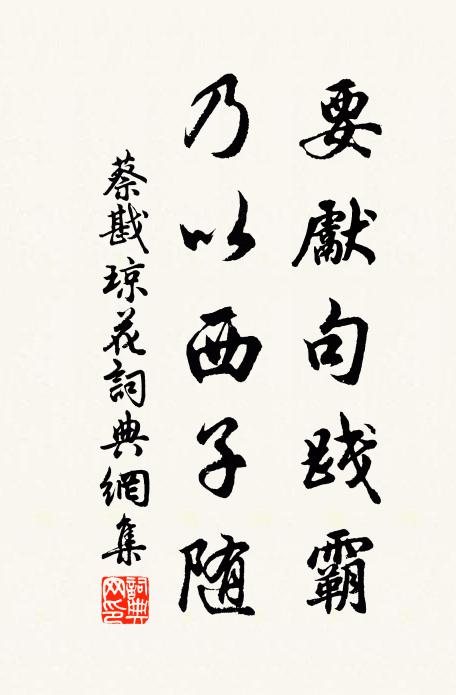 要獻句踐霸
乃以西子随
蔡戡琼花詞典網集
詞典網印